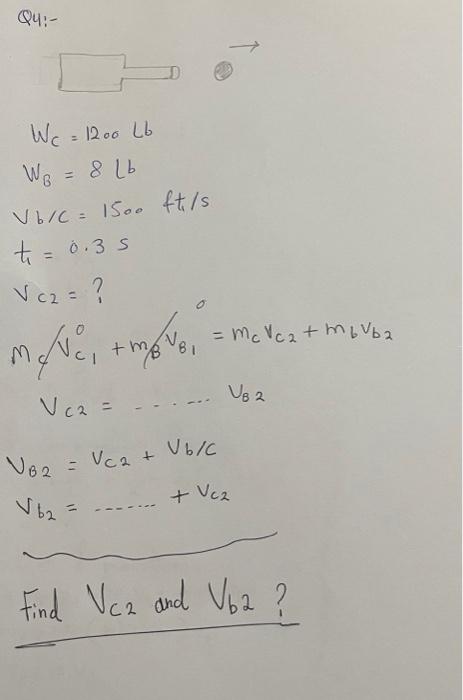 Q4:-
Wc = 1200 Lb
WB = 8 Lb
Vb/c = 1500 ft/s
t = 0.3 s
Vc2 = ?
0 0
mc Vc1 + mB VB1 = mc Vc2 + mb Vb2
Vc2 = ....... VB2
VB2 = Vc2 + Vb/c
Vb2 = ....... + Vc2
Find Vc2 and Vb2 ?